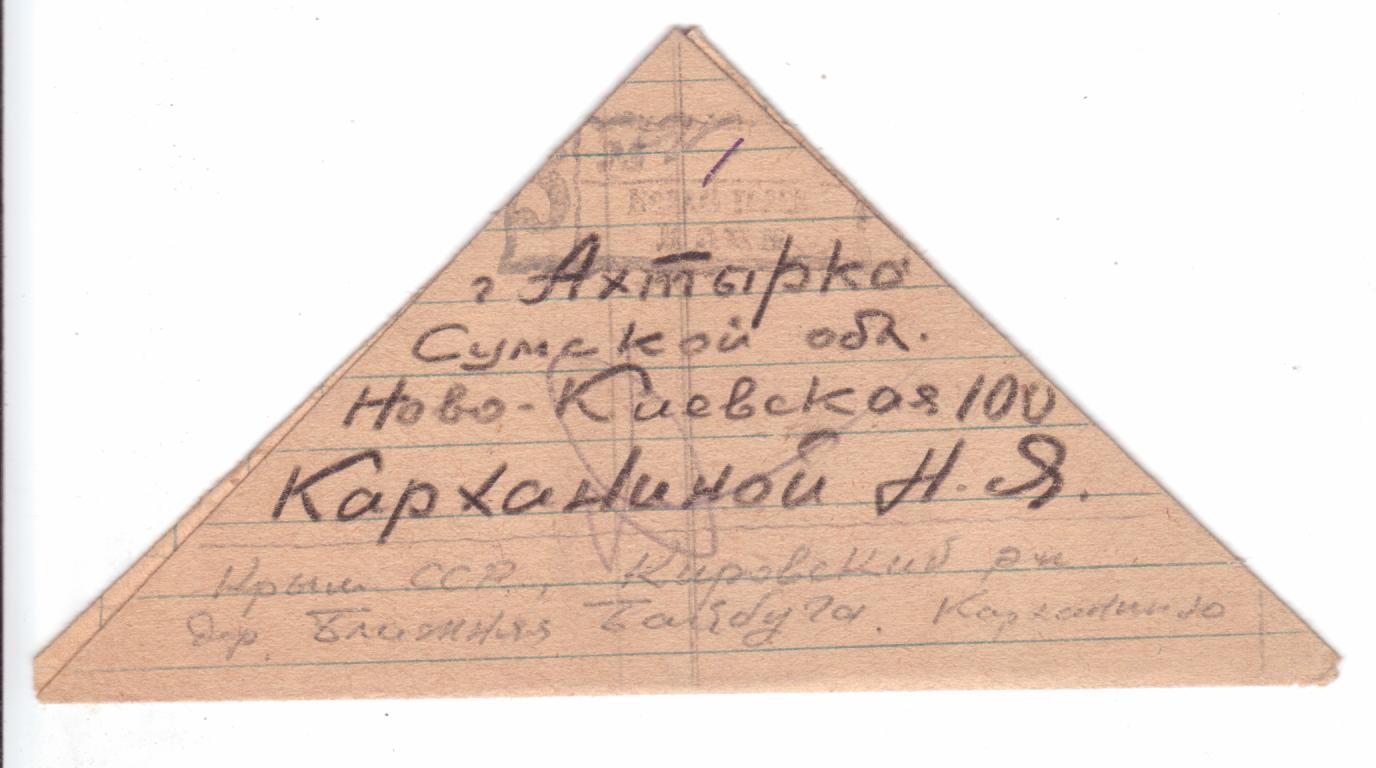 г Ахтырка
Сумской обл.
Ново-Киевская 100
Карханиной Н.Я.
Крым ССР, Кировский р-н
дер. Ближняя Байбуга. Карханину